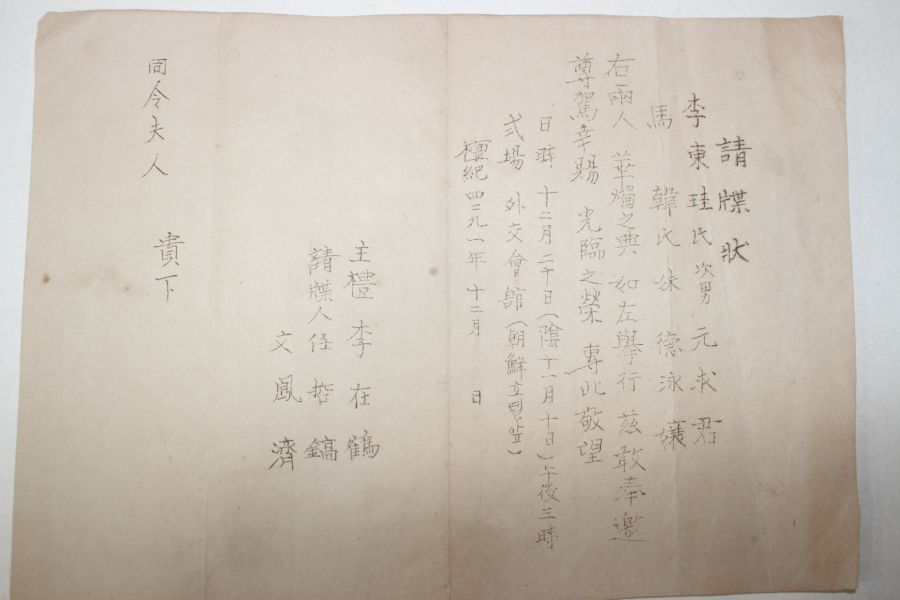 請牒狀
李東珪氏 次男 元求君
馬韓氏 妹 德泳孃
右兩人 華燭之典 如左擧行 玆敢奉邀
尊駕幸賜 光臨之榮 專此敬望
日時 十二月 二十日(陰 十一月 十日) 午後 三時
式場 外交會舘 (朝鮮호텔앞)
檀紀 四二九一年 十二月 日
主禮 李在鶴
請牒人 任哲鎬
文鳳濟
貴下
同令夫人